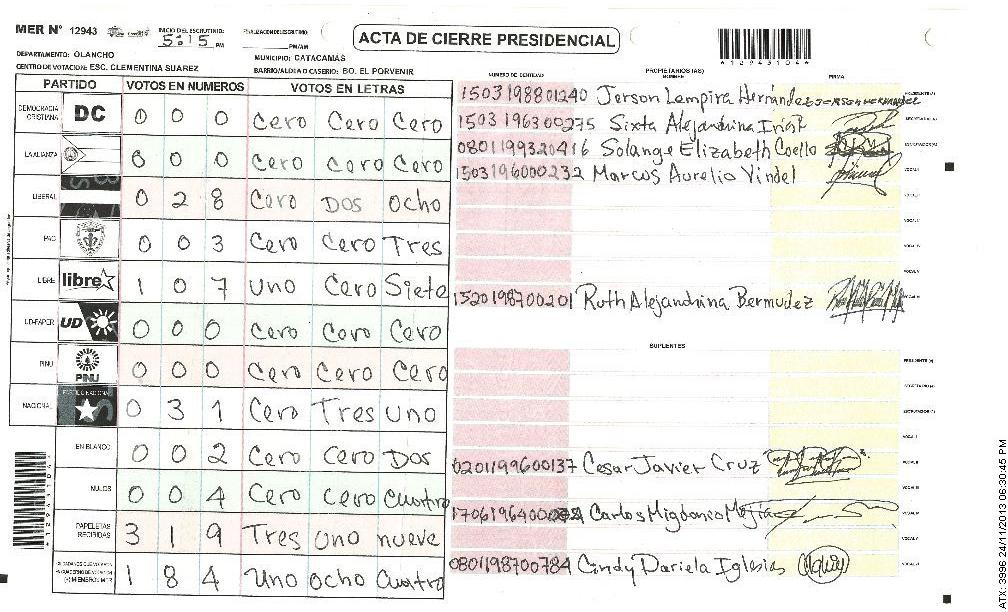 MER N° 12943 INICIO DEL ESCRUTINIO 5:15 PM FINALIZACION DEL ESCRUTINIO PM/AM
ACTA DE CIERRE PRESIDENCIAL
DEPARTAMENTO: OLANCHO MUNICIPIO: CATACAMAS
CENTRO DE VOTACION: ESC. CLEMENTINA SUAREZ BARRIO/ALDEA O CASERIO: BO. EL PORVENIR
PARTIDO VOTOS EN NUMEROS VOTOS EN LETRAS
DEMOCRACIA CRISTIANA DC 0 0 0 Cero Cero Cero
LA ALIANZA 0 0 0 Cero Cero Cero
LIBERAL 0 2 8 Cero Dos Ocho
PAC 0 0 3 Cero Cero Tres
LIBRE libre 1 0 7 Uno Cero Siete
UD-FAPER UD 0 0 0 Cero Cero Cero
PINU PINU 0 0 0 Cero Cero Cero
NACIONAL 0 3 1 Cero Tres Uno
EN BLANCO 0 0 2 Cero Cero Dos
NULOS 0 0 4 Cero Cero Cuatro
PAPELETAS RECIBIDAS 3 1 9 Tres Uno nueve
1 8 4 Uno ocho Cuatro
NUMERO DE IDENTIDAD PROPIETARIOS (AS) NOMBRE FIRMA
1503198801240 Jerson Lempira Hernández JERSON HERNANDEZ PRESIDENTE (A)
1503196300275 Sixta Alejandrina SECRETARIO (A)
0801199320416 Solange Elizabeth Coello ESCRUTADOR (A)
1503196000232 Marcos Aurelio Vindel VOCAL I
1520198700201 Ruth Alejandrina Bermudez
SUPLENTES
PRESIDENTE (A)
SECRETARIO (A)
ESCRUTADOR (A)
VOCAL I
0201199600137 Cesar Javier Cruz VOCAL II
VOCAL III
Carlos Migdonio Mejia VOCAL IV
VOCAL V
0801198700784 Cindy Dariela Iglesias
ATX: 3996 24/11/2013 06:30:45 PM